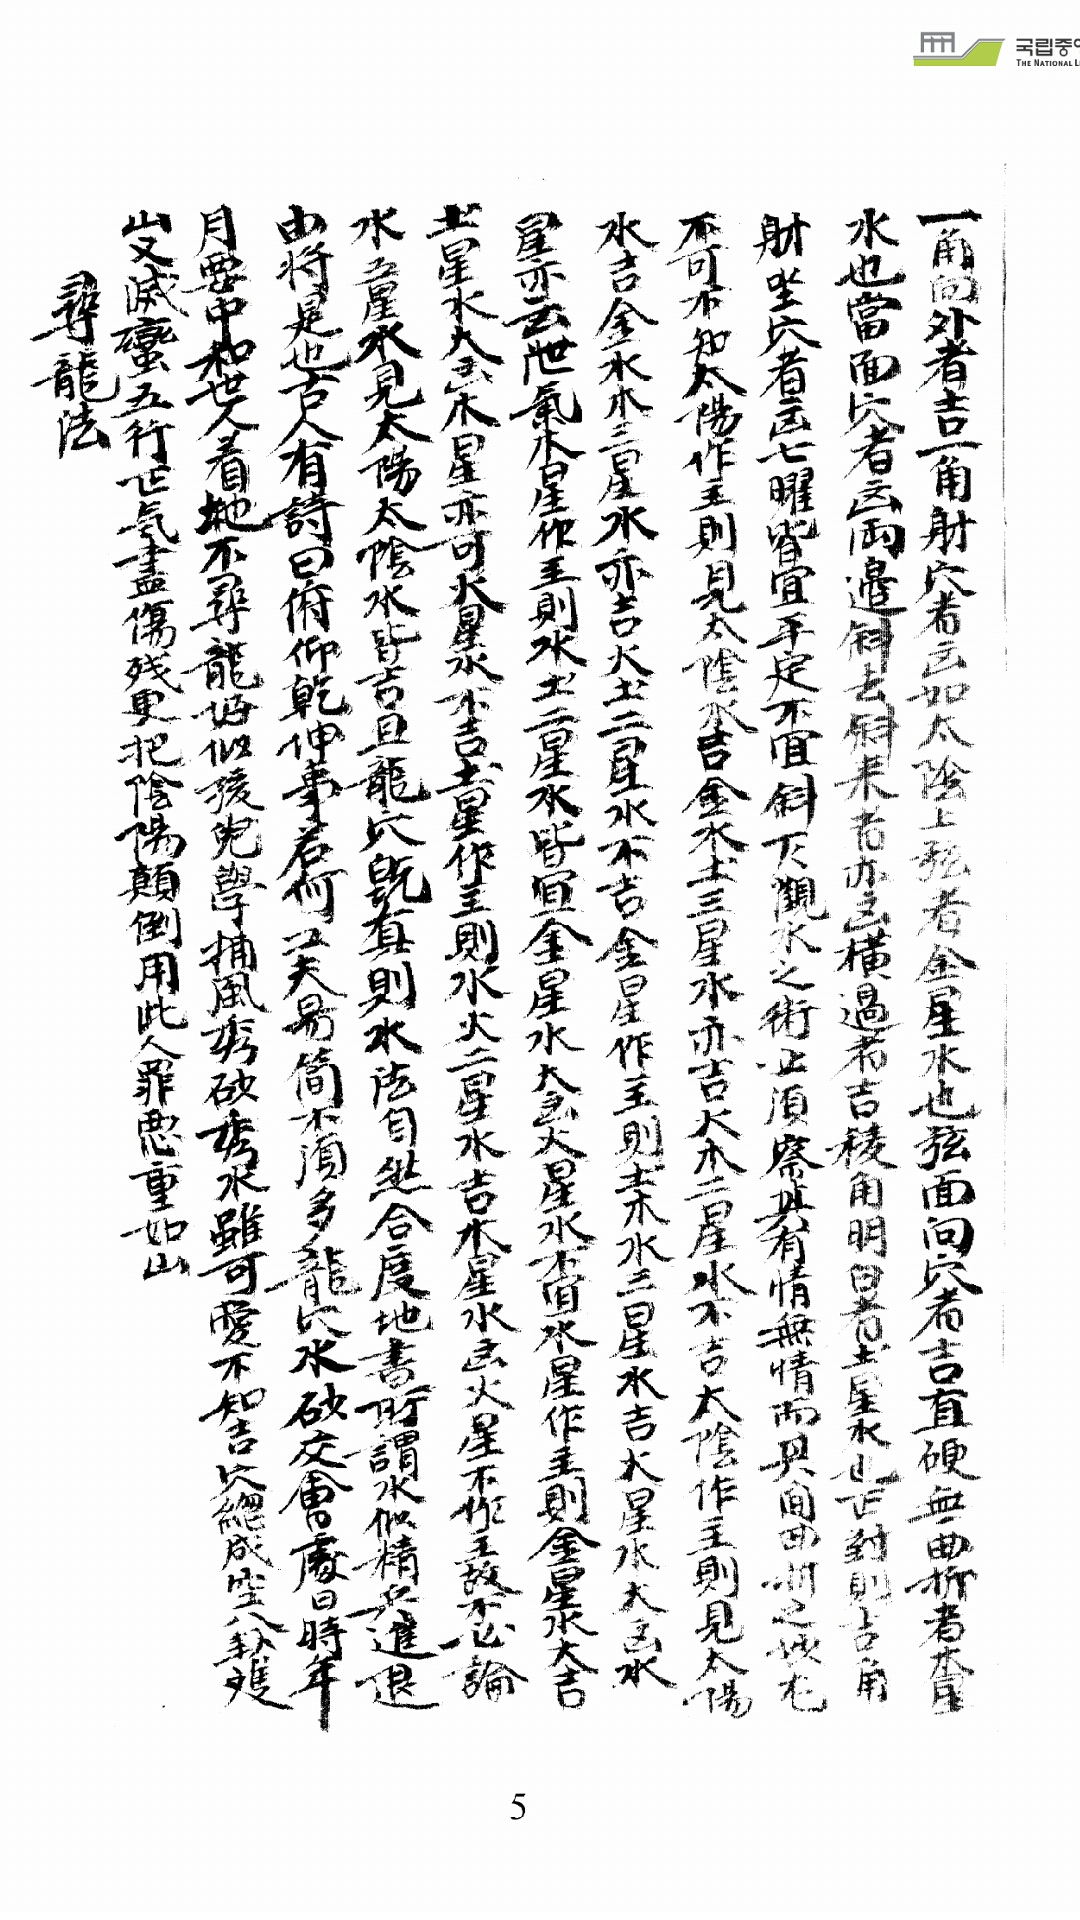 국립중
THE NATIONAL L
一角向外者吉一角射穴者凶如太陰上弦者金星水也弦面向穴者吉直硬無曲折者木星
水也當面穴者凶両邉斜去斜来者亦凶橫過者吉稜角明白者土星水也正對則吉角
射坐穴者凶七曜皆宜平定不宜斜下觀水之術止須察其有情無情而其间曲折之妙尤
不可不知太陽作主則見太陰水吉金水土三星水亦吉火木二星水不吉太陰作主則見太陽
水吉金水木三星水亦吉火土二星水不吉金星作主則土木水三星水吉火星水大凶水
星亦云泄氣木星作主則水土二星水皆宜金星水大凶火星水不宜水星作主則金星水大吉
土星水大凶木星亦可火星水不吉土星作主則水火二星水吉木星水凶火星不作主故不必論
水五星水見太陽太陰水皆吉且龍穴旣真則水法自然合度地書所謂水似精兵進退
由將是也古人有詩曰俯仰乾坤事若何工夫易简不湏多龍穴水砂交會處日時年
月要中和世人着地不尋龍好似孩兒學捕風秀砂秀水雖可愛不知吉穴緫成空八卦雙
山又滅蠻五行正气盡傷残更把陰陽顛倒用此人罪悪重如山
尋龍法
5